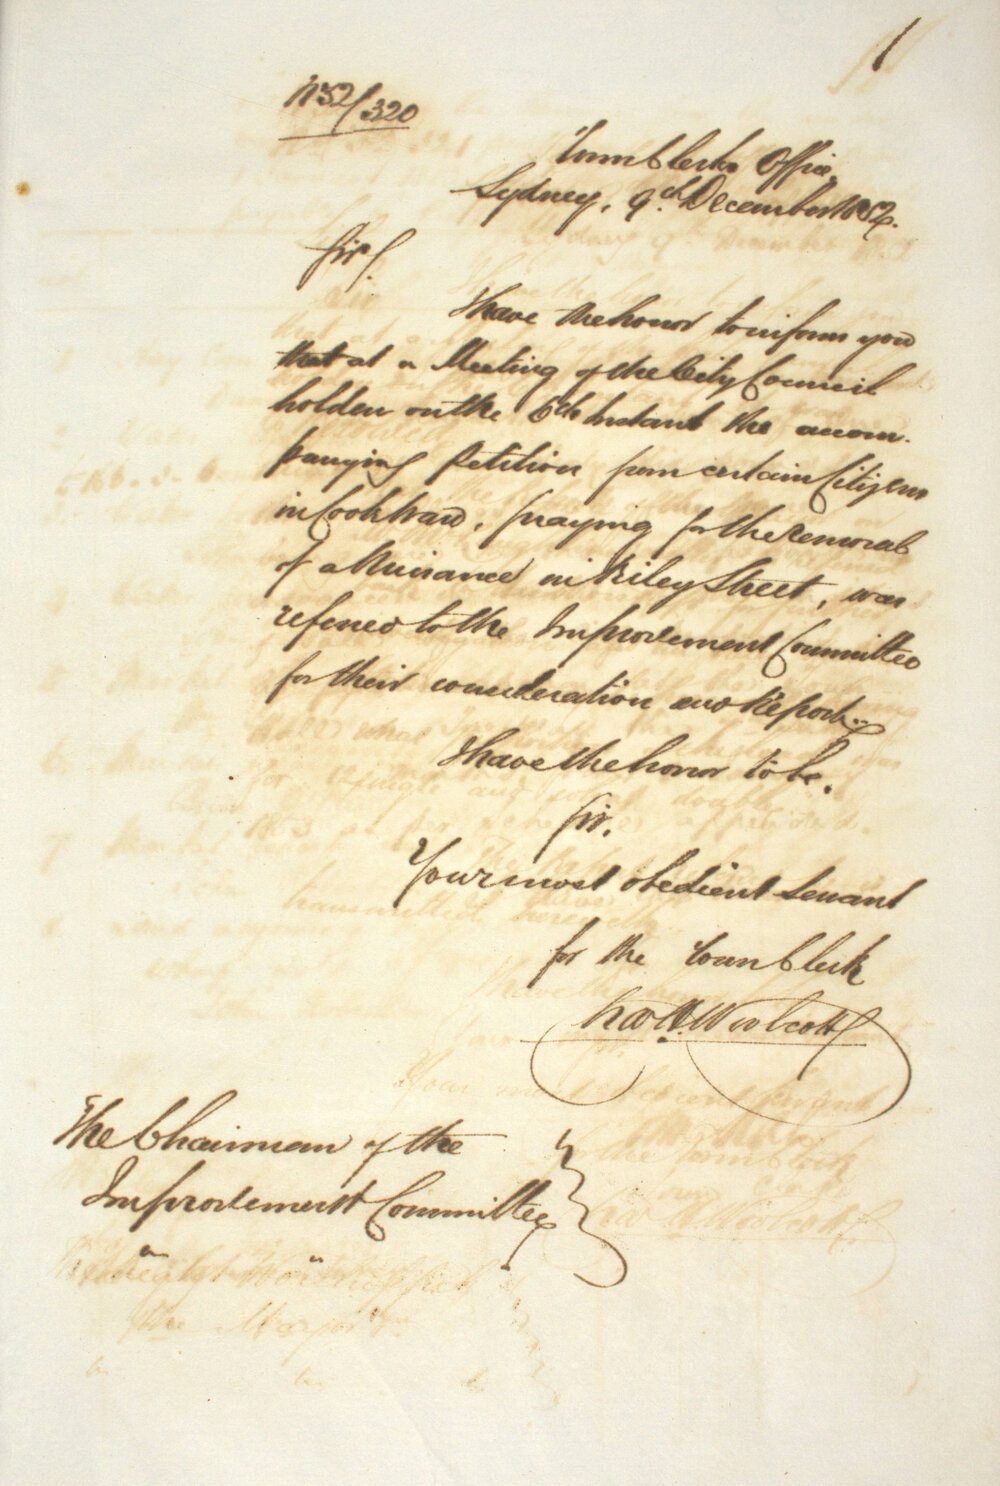 1
No 52/320
Town Clerks Office,
Sydney, 9th December 1852.
Sir,
I have the honor to inform you
that at a Meeting of the City Council
holden on the 6th Instant the accom-
panying Petition from certain Citizens
in Cook Ward, praying for the removal
of a Nuisance in Riley Street, was
referred to the Improvement Committee
for their consideration and Report.
I have the honor to be,
Sir,
Your most obedient Servant
for the Town Clerk
Woolcott
The Chairman of the
Improvement Committee